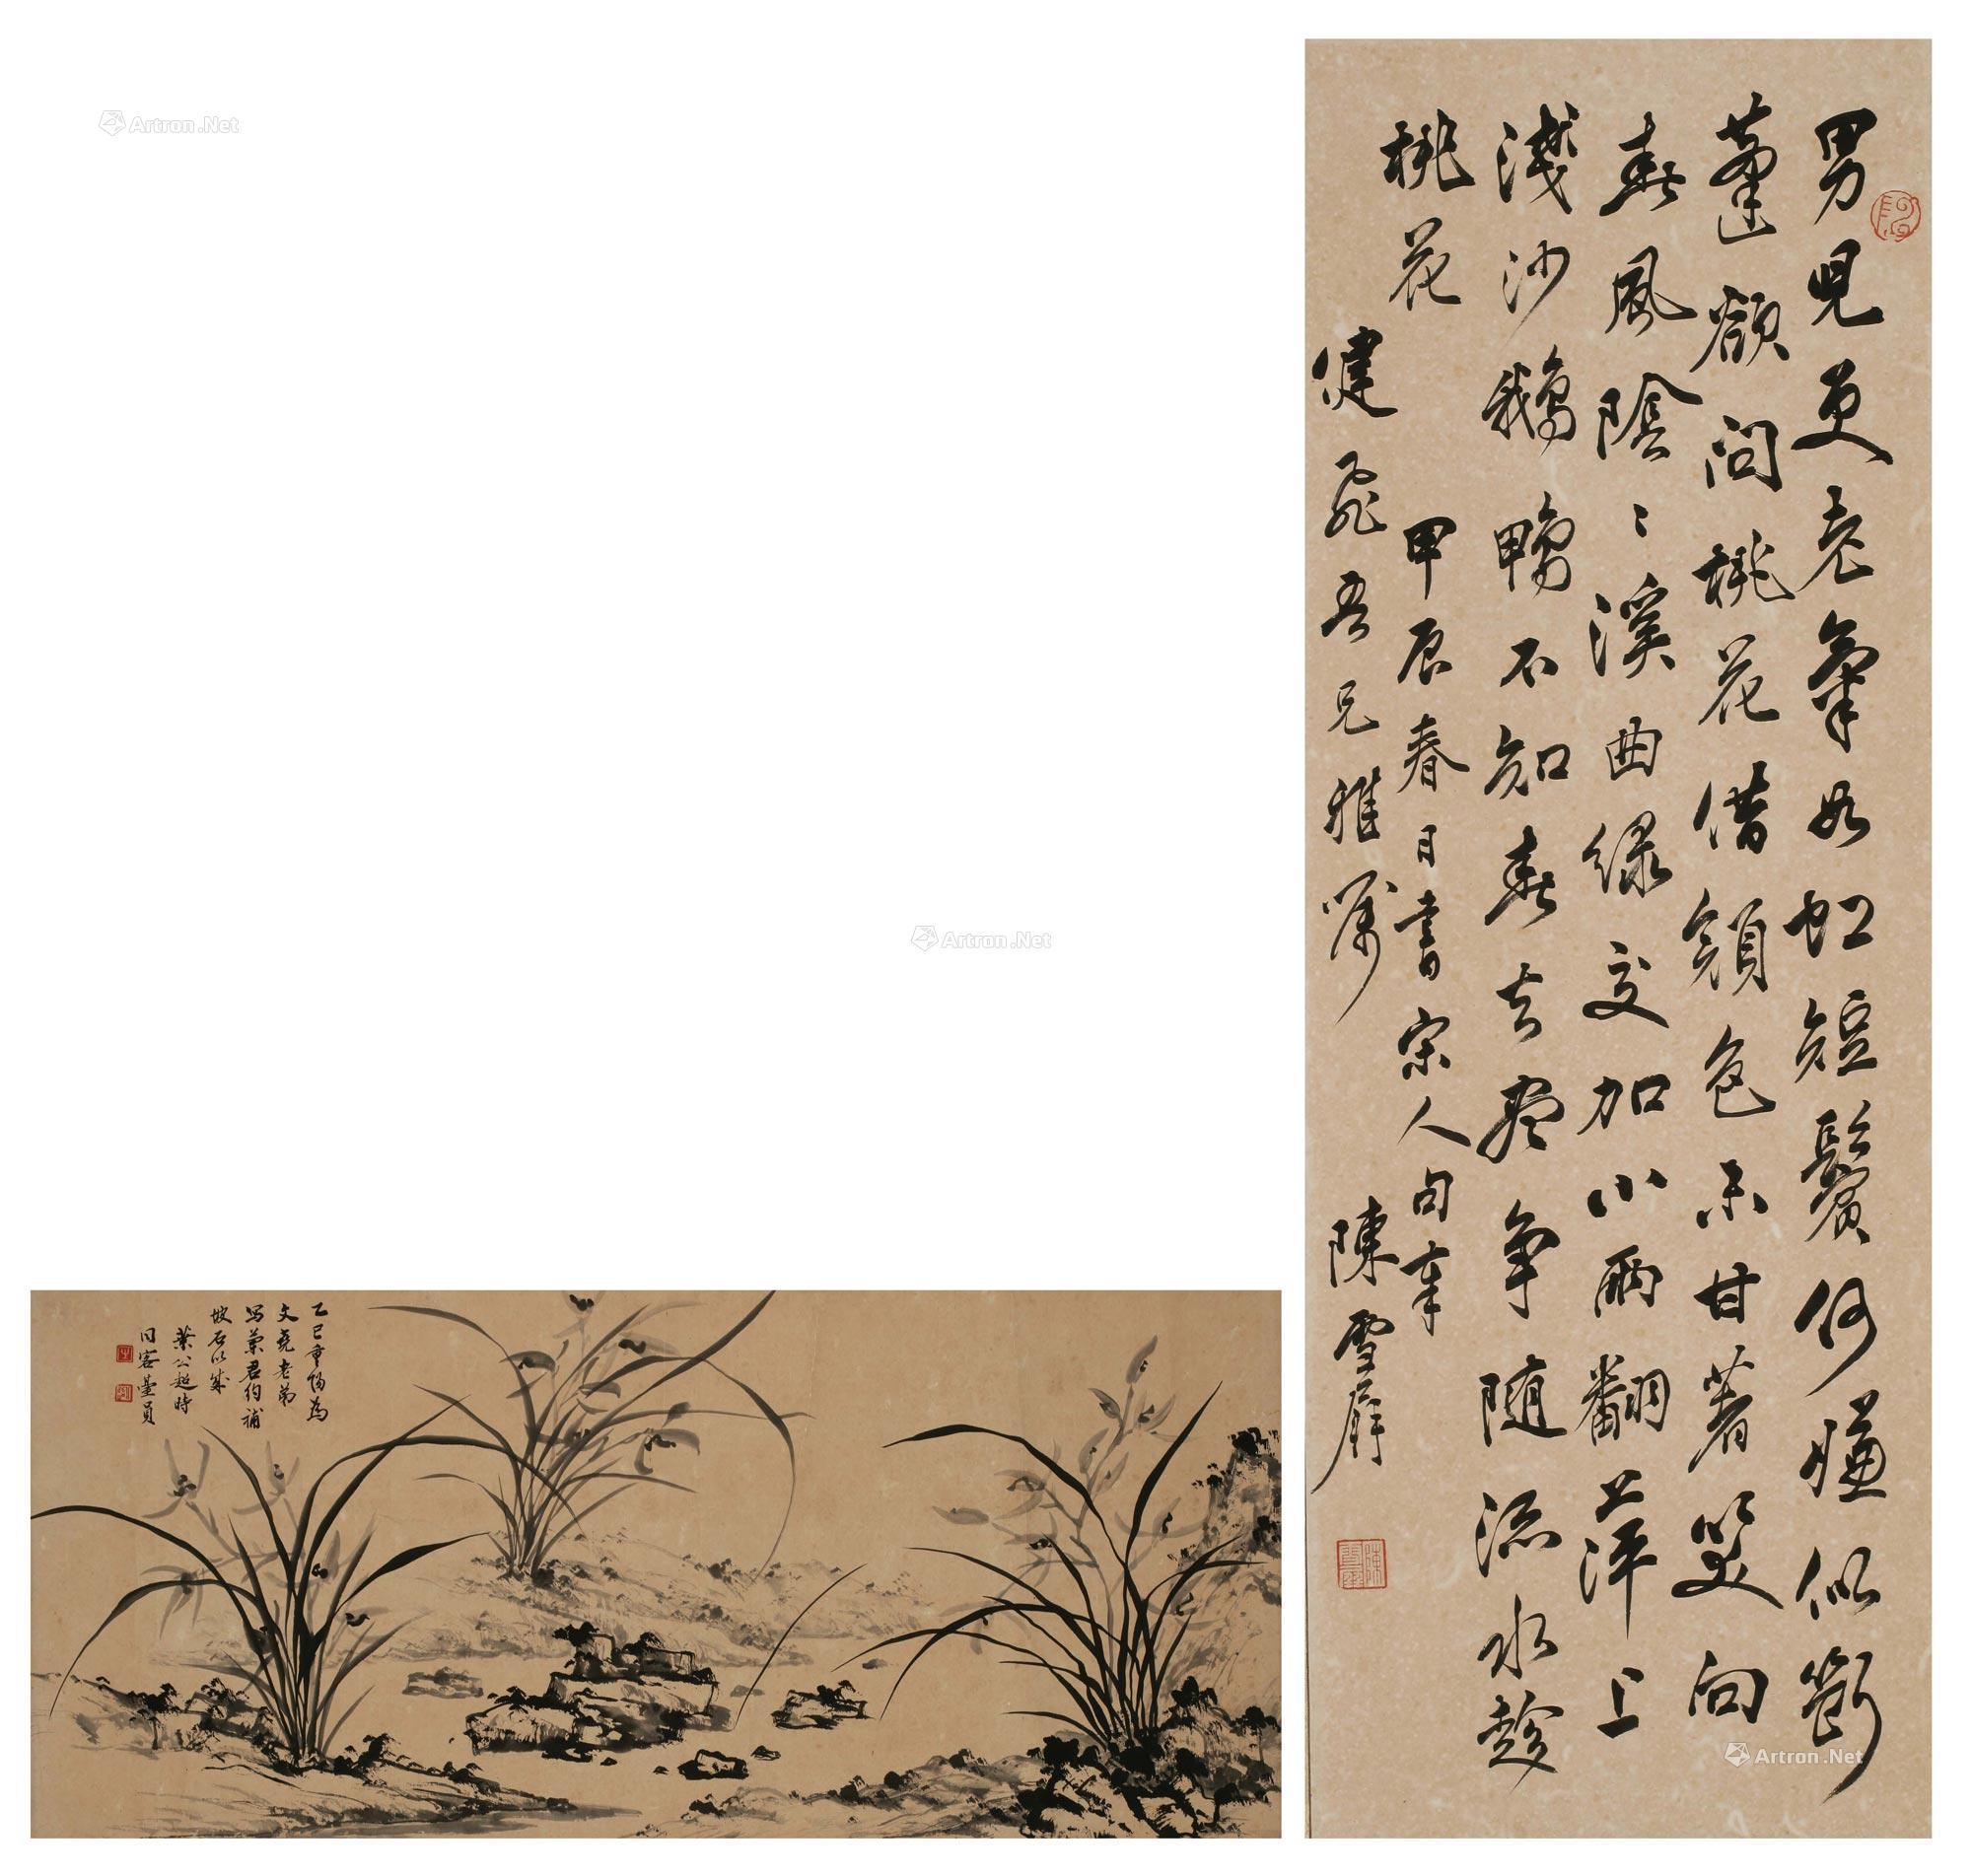 男兒更老氣如虹短鬢何嫌似斷
蓬欲問桃花借顏色未甘著笑向
春風陰〻溪曲綠交加小雨翻萍上
淺沙鵝鴨不知春去盡爭隨流水趁
桃花 甲辰春日書宋人句奉
健飛吾兄雅嘱 陳雪屏
乙巳重陽為
文堯老弟
寫蘭君約補
坡石以成
葉公超時
同客臺員
Artron.Net
Artron.Net
Artron.Net